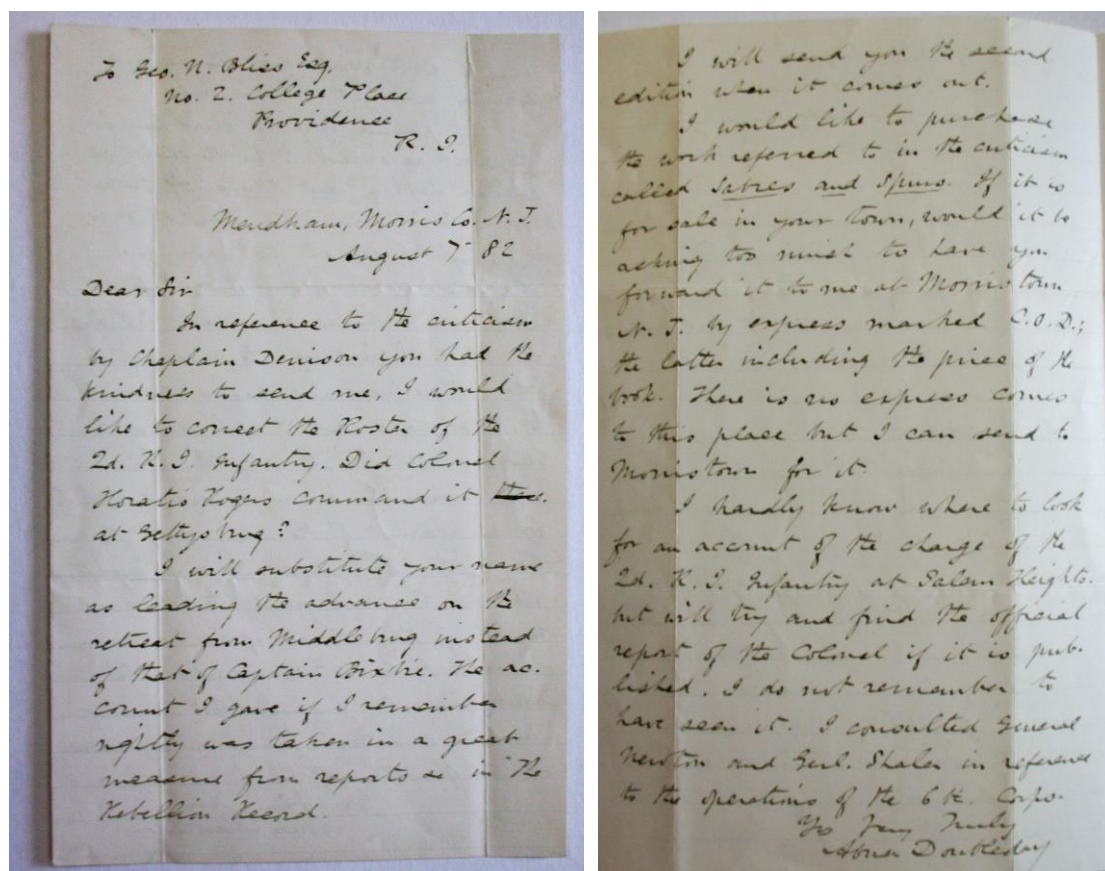 To Geo. N. Bliss Esq.
No. 2. College Place
Providence
R. I.
Mendham, Morris Co. N. J.
August 7 82
Dear Sir
In reference to the criticism
by Chaplain Denison you had the
kindness to send me, I would
like to correct the Roster of the
2d. R. I. Infantry. Did Colonel
Horatio Rogers command it
at Gettysburg?
I will substitute your name
as leading the advance on the
retreat from Middleburg instead
of that of Captain Bixbie. The ac-
count I gave if I remember
rightly was taken in a great
measure from reports &c in the
Rebellion Record.
I will send you the second
edition when it comes out.
I would like to purchase
the work referred to in the criticism
called Sabres and Spurs. If it is
for sale in your town, would it be
asking too much to have you
forward it to me at Morristown
N. J. by express marked C.O.D.;
the latter including the price of the
book. There is no express comes
to this place but I can send to
Morristown for it.
I hardly know where to look
for an account of the charge of the
2d. R. I. Infantry at Salem Heights.
but will try and find the official
report of the Colonel if it is pub-
lished. I do not remember to
have seen it. I consulted General
Newton and Genl. Shaler in reference
to the operations of the 6th. Corps.
Yrs Very Truly
Abner Doubleday